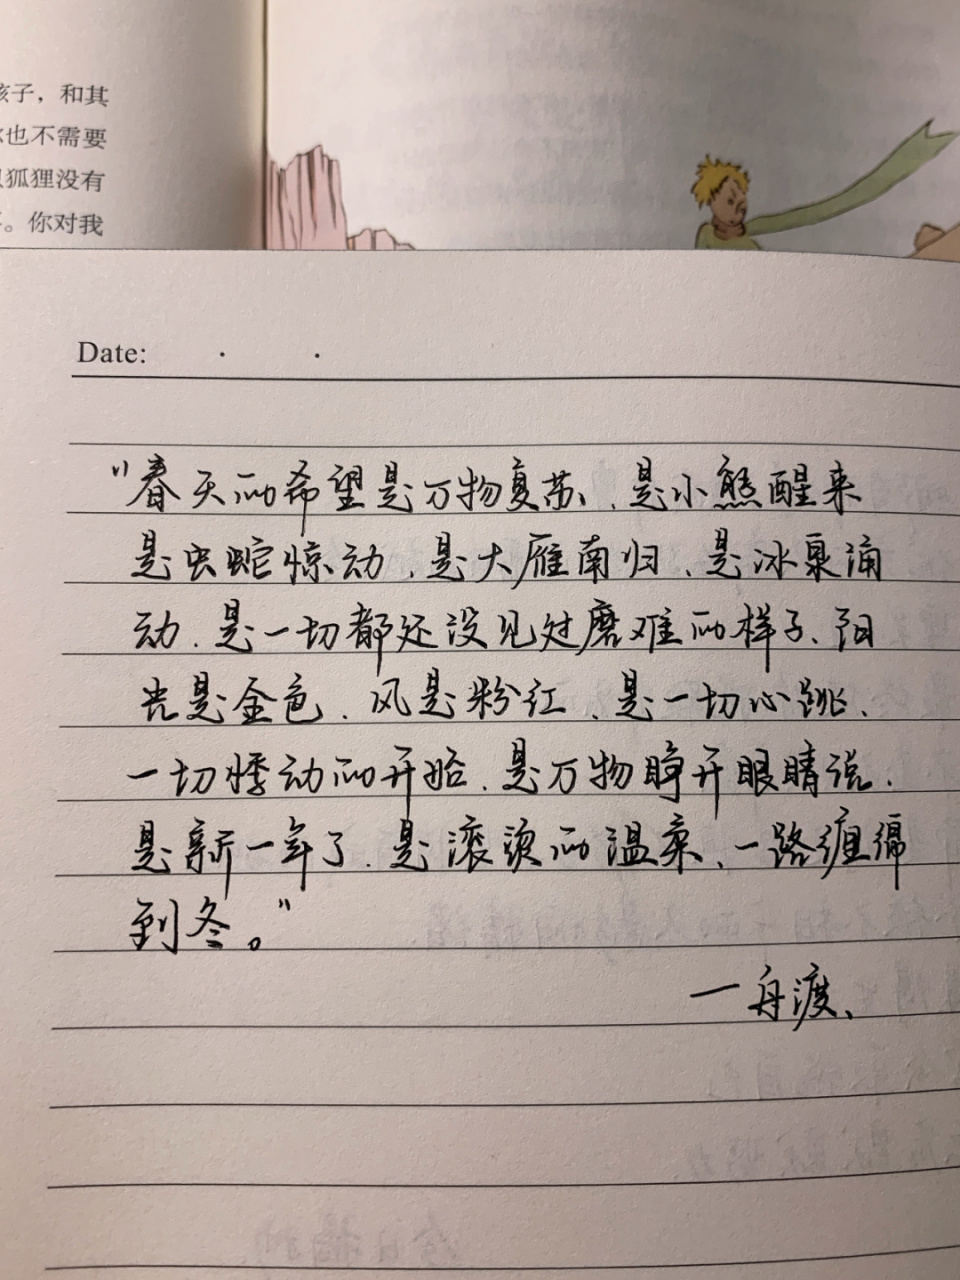 孩子，和其
也不需要
狐狸没有
。你对我
Date: · ·
“春天的希望是万物复苏、是小熊醒来
是虫蛇惊动、是大雁南归、是冰泉涌
动、是一切都还没见过磨难的样子、阳
光是金色、风是粉红、是一切心跳、
一切悸动的开始、是万物睁开眼睛说、
是新一年了、是滚烫的温柔、一路缠绵
到冬。”
一舟渡、